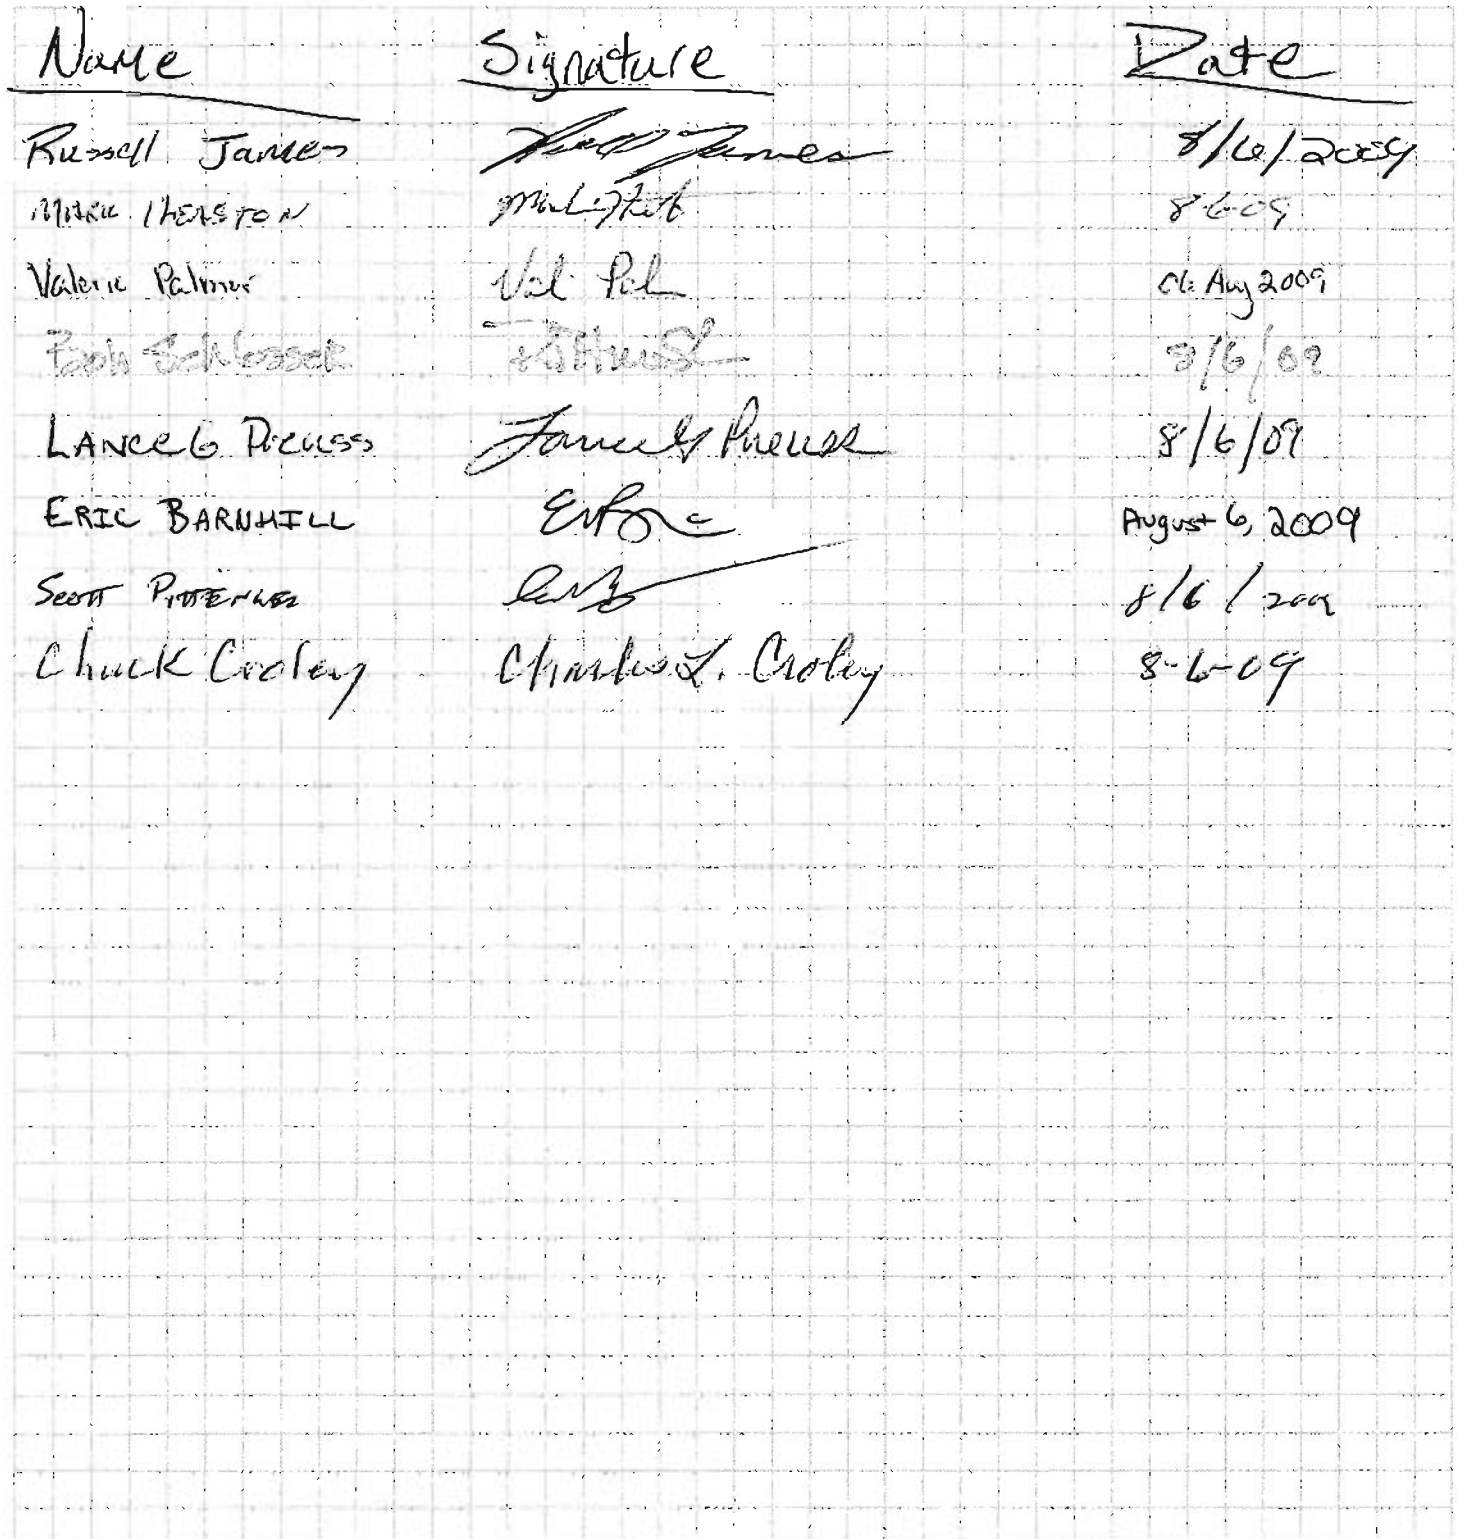 Name Signature Date
Russell James Russell James 8/6/2009
MARK 8-6-09
Valerie Palmer Val Pal 06 Aug 2009
Schlosser 8/6/09
LANCE G PREUSS Lance G Preuss 8/6/09
ERIC BARNHILL August 6, 2009
Scott PITTENGER 8/6/2009
Chuck Croley Charles L. Croley 8-6-09